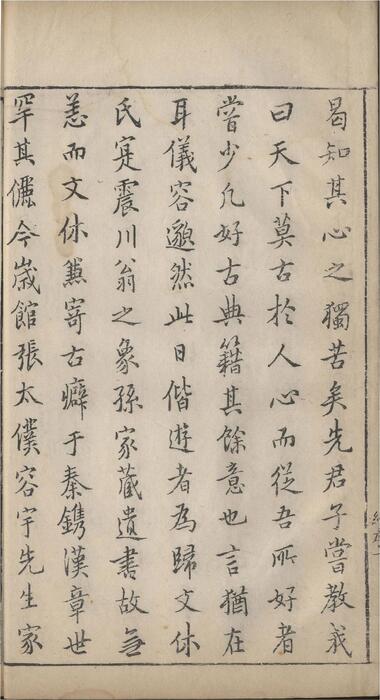 曷知其心之獨苦矣先君子嘗教我
曰天下莫古於人心而從吾所好者
嘗少凡好古典籍其餘意也言猶在
耳儀容邈然此日偕遊者為歸文休
氏寔震川翁之象孫家藏遺書故無
恙而文休兼寄古癖于秦鐫漢章世
罕其儷今歲館張太僕容宇先生家